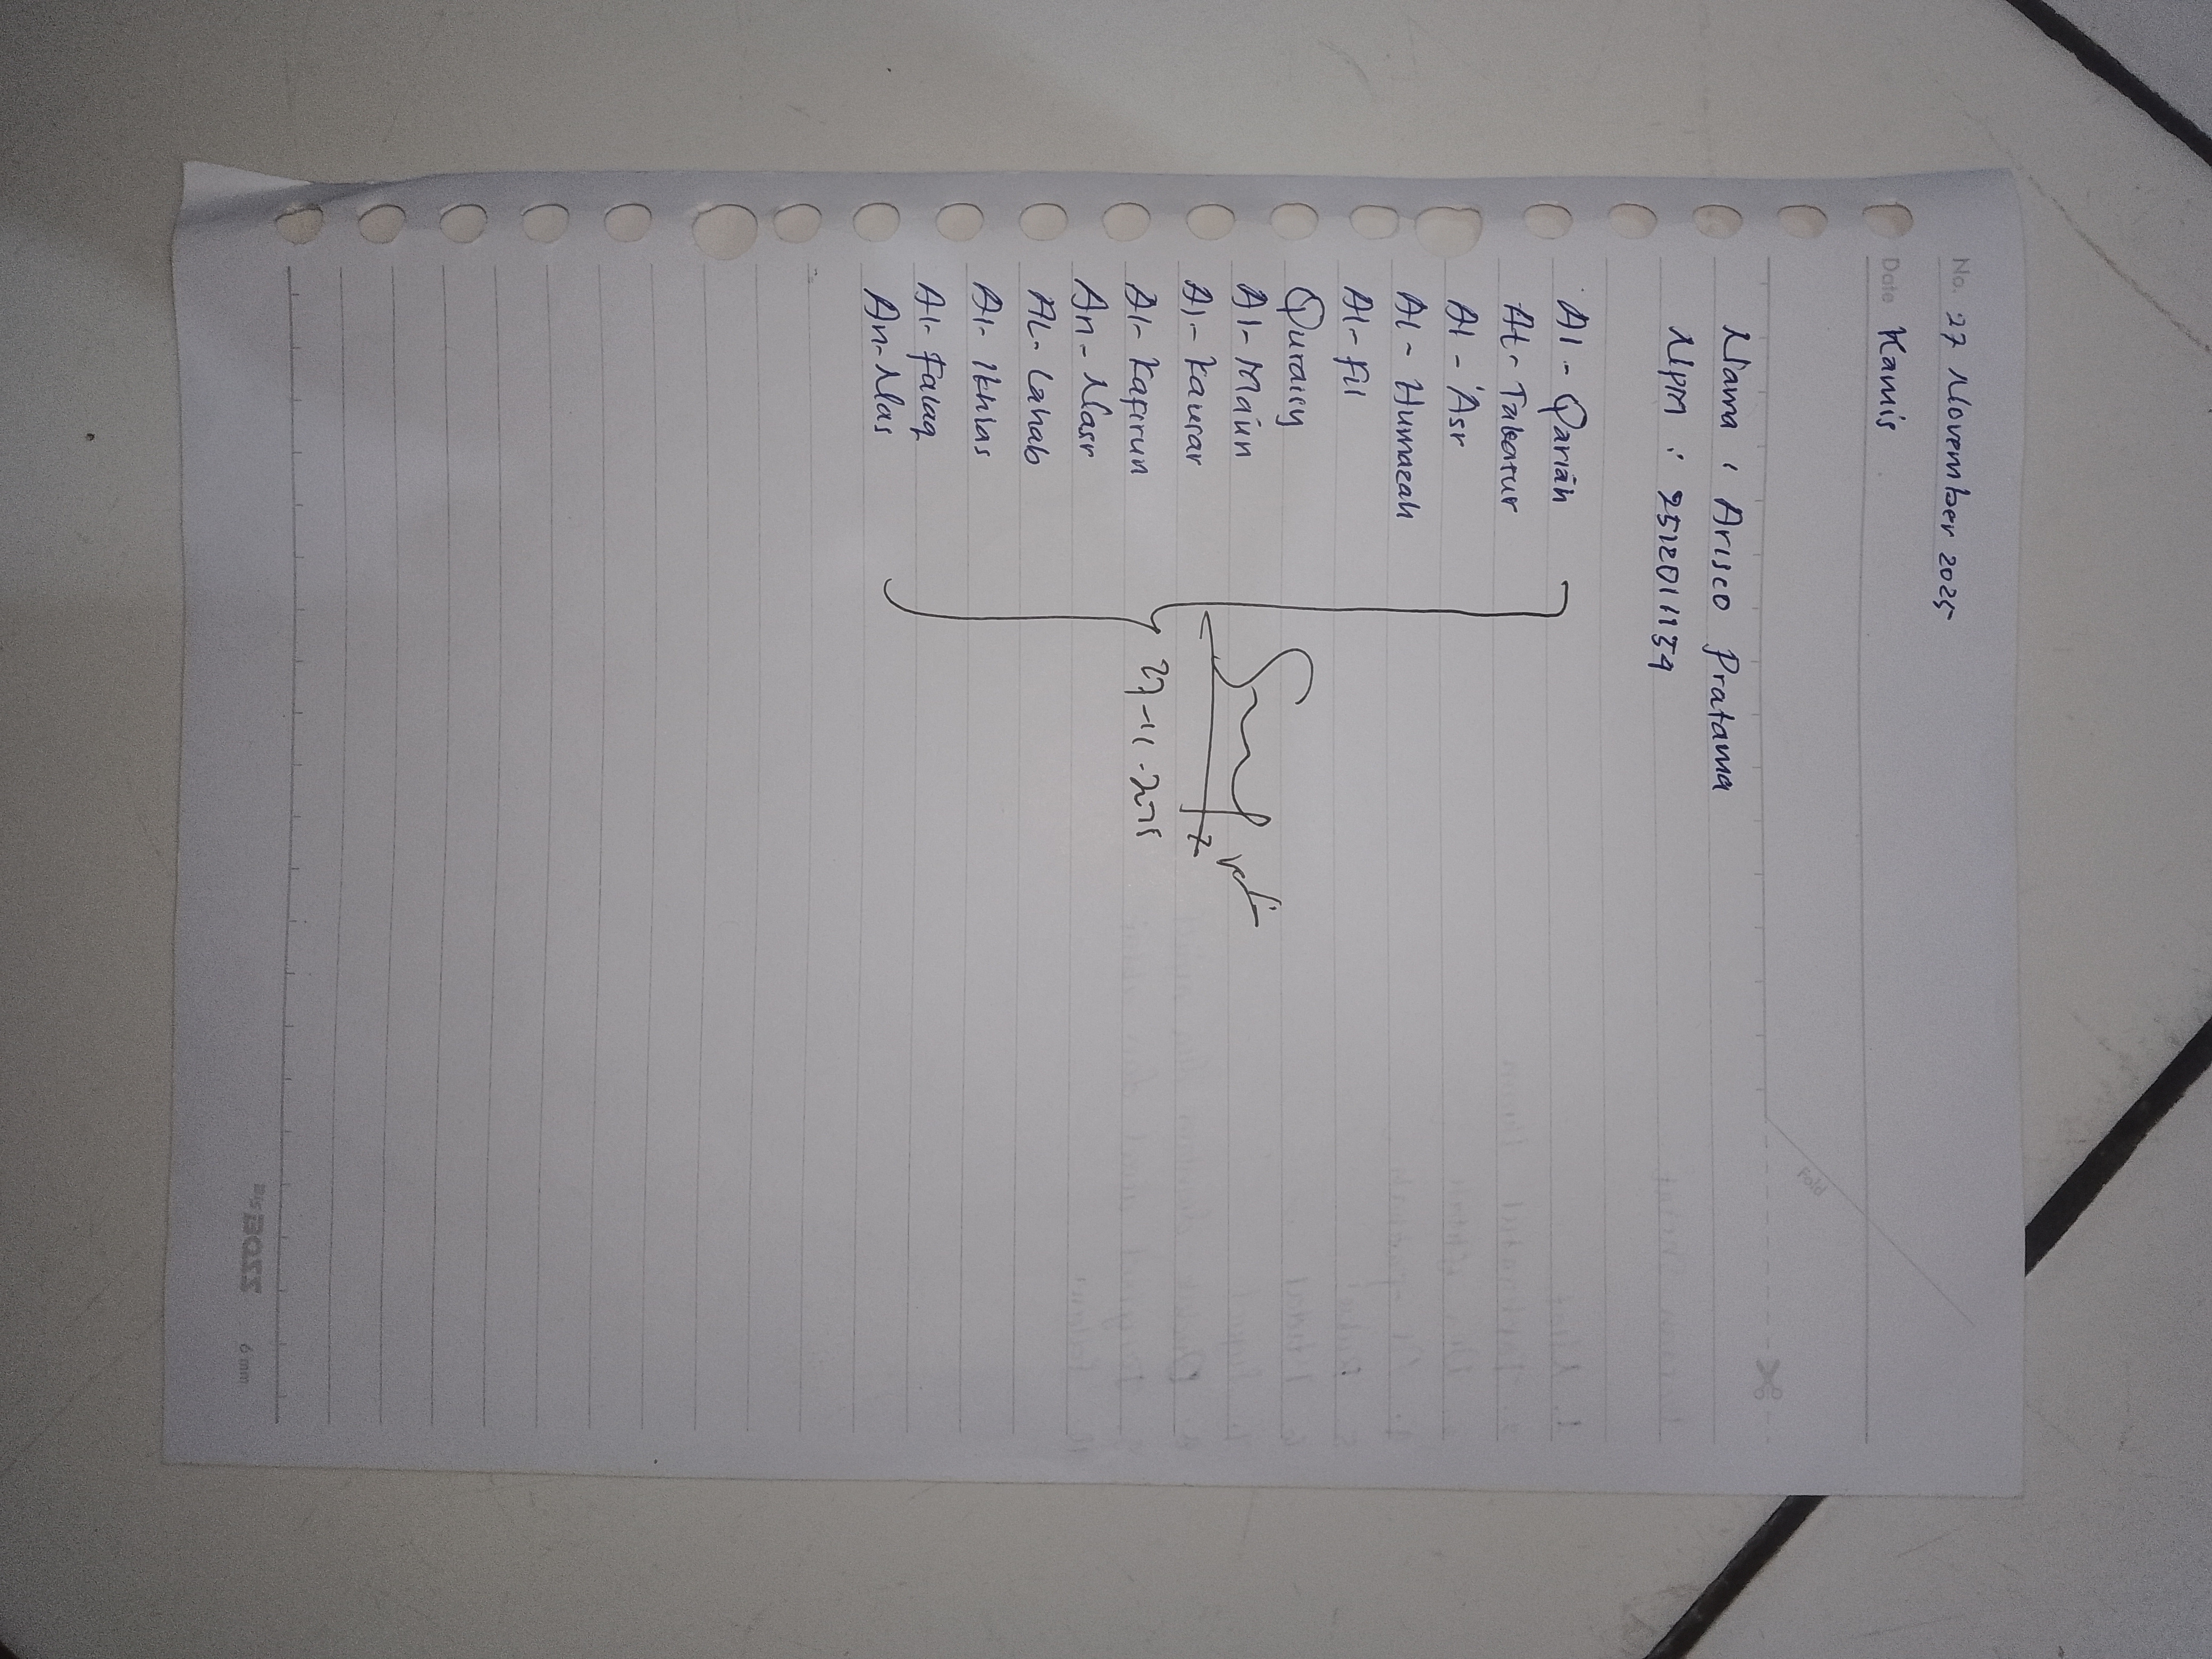 No. 27 November 2025
Date Kamis
Nama : Arisco Pratama
NPM : 2512011134
Al - Qariáh
At - Takatur
Al - 'Asr
Al - Humazah
Al - Fil
Quraisy
Al - Maún
Al - Kausar
Al - Kafirun
An - Nasr
AL - Lahab
Al - Ikhlas
Al - Falaq
An - Nas
27-11-2025
Fold
Big BOSS
6 mm